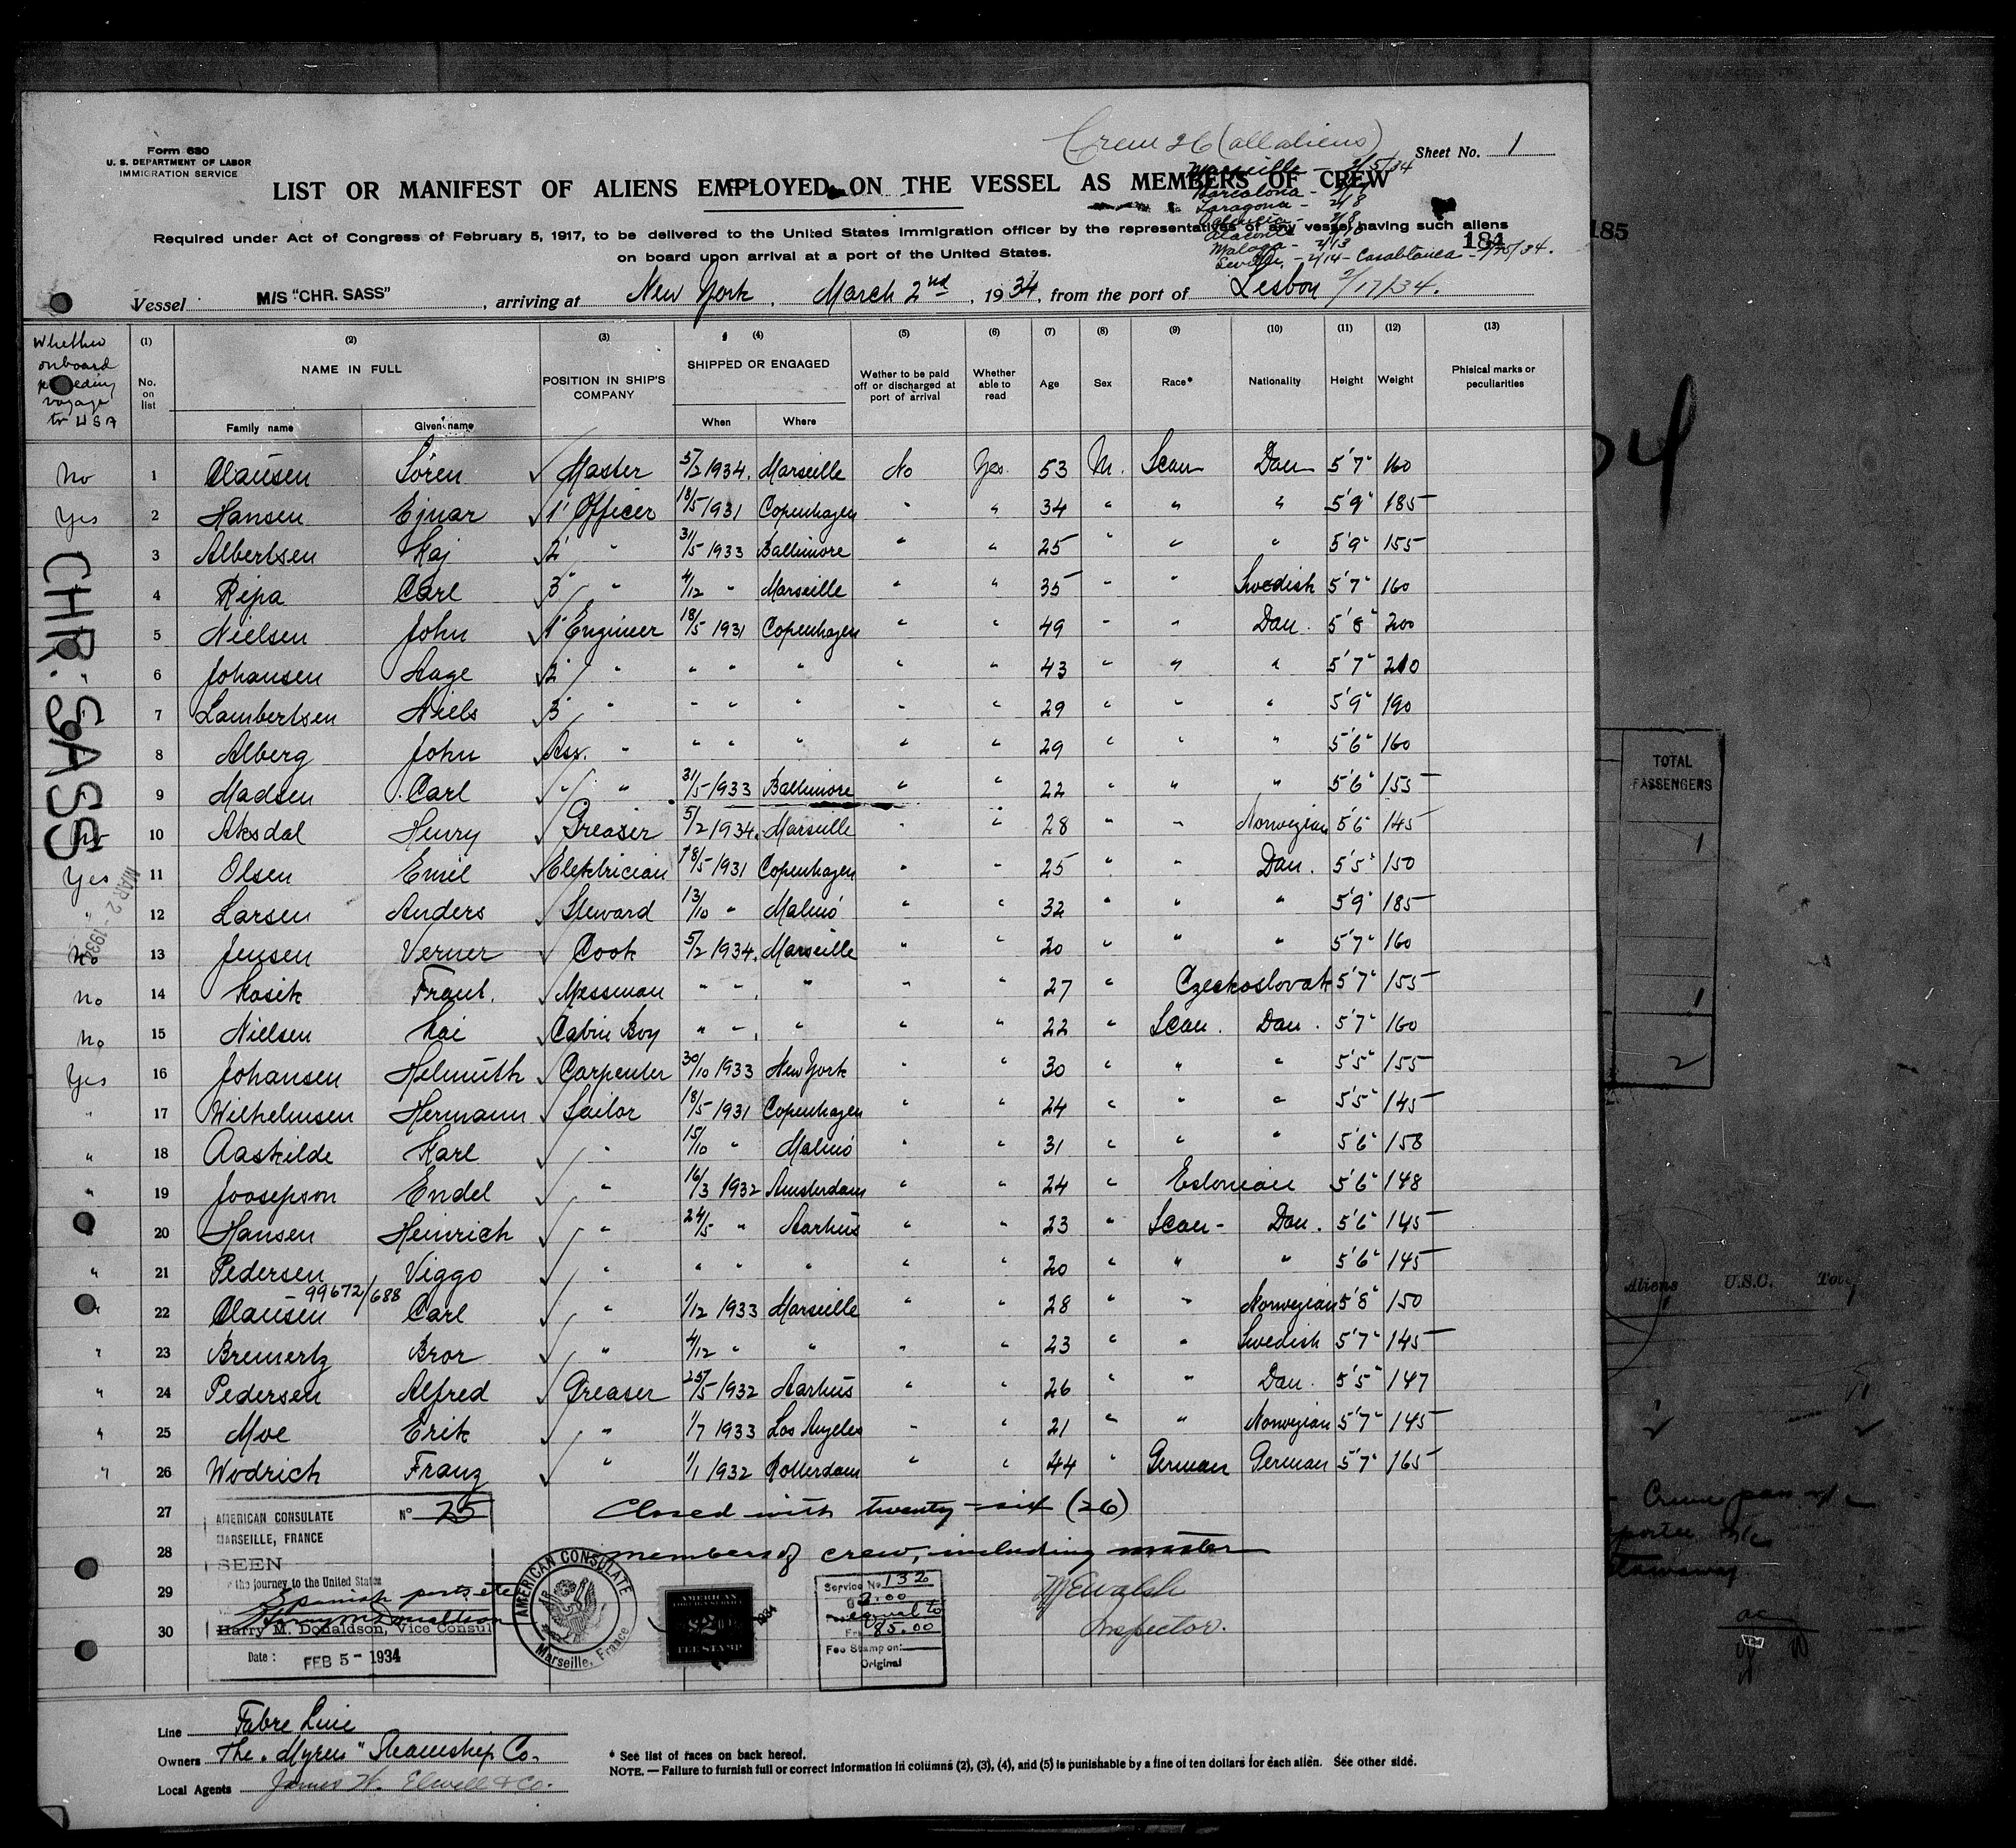 Crew 26 (all aliens)
Form 680
U. S. DEPARTMENT OF LABOR
IMMIGRATION SERVICE
Sheet No. 1
LIST OR MANIFEST OF ALIENS EMPLOYED ON THE VESSEL AS MEMBERS OF CREW
Marseille - 2/5/34
Barcelona -
Taragona - 2/8
Valencia - 2/8
Alacante
Malaga - 2/13
Seville - 2/14 - Casablanca - 2/25/34.
Required under Act of Congress of February 5, 1917, to be delivered to the United States Immigration officer by the representatives of any vessel having such aliens
on board upon arrival at a port of the United States.
184
185
Vessel M/S "CHR. SASS", arriving at New York, March 2nd, 1934, from the port of Lesbon 2/17/34.
Whether onboard preceding voyage to USA
(1) (2) (3) (4) (5) (6) (7) (8) (9) (10) (11) (12) (13)
No. on list
NAME IN FULL
Family name Given name
POSITION IN SHIP'S COMPANY
SHIPPED OR ENGAGED
When Where
Wether to be paid off or discharged at port of arrival
Whether able to read
Age Sex Race* Nationality Height Weight
Phisical marks or peculiarities
No 1 Clausen Sören Master 5/2 1934. Marseille No Yes 53 M. Scan Dan 5'7" 160
Yes 2 Hansen Ejnar 1' Officer 18/5 1931 Copenhagen " " 34 " " " 5'9" 185
3 Albertsen Kaj 2' " 31/5 1933 Baltimore " " 25 " " " 5'9" 155
4 Ripa Carl 3' " 4/12 " Marseille " " 35 " " Swedish 5'7" 160
5 Nielsen John 1' Engineer 18/5 1931 Copenhagen " " 49 " " Dan. 5'8" 200
" 6 Johansen Aage 2' " " " " " " 43 " " " 5'7" 210
7 Lambertsen Niels 3' " " " " " " 29 " " " 5'9" 190
8 Alberg John Ass. " " " " " " 29 " " " 5'6" 160
9 Madsen Carl " " 31/5 1933 Baltimore " " 22 " " " 5'6" 155
No 10 Aksdal Henry Greaser 5/2 1934. Marseille " " 28 " " Norwegian 5'6" 145
Yes 11 Olsen Emil Elektrician 18/5 1931 Copenhagen " " 25 " " Dan. 5'5" 150
" 12 Larsen Anders Steward 13/10 " Malmö " " 32 " " " 5'9" 185
No 13 Jensen Verner Cook 5/2 1934. Marseille " " 20 " " " 5'7" 160
No 14 Kosik Frant. Messman " " " " " 27 " Czechoslovak 5'7" 155
No 15 Nielsen Kai Cabin Boy " " " " " 22 " Scan. Dan. 5'7" 160
Yes 16 Johansen Helmuth Carpenter 30/10 1933 New York " " 30 " " " 5'5" 155
" 17 Wilhelmsen Hermann Sailor 18/5 1931 Copenhagen " " 24 " " " 5'5" 145
" 18 Aaskilde Karl " 15/10 " Malmö " " 31 " " " 5'6" 158
" 19 Joosepson Endel " 16/3 1932 Amsterdam " " 24 " Estonian 5'6" 148
20 Hansen Heinrich " 24/5 " Aarhus " " 23 " Scan - Dan. 5'6" 145
" 21 Pedersen Viggo " " " " " " 20 " " " 5'6" 145
99672/688
" 22 Clausen Carl " 1/12 1933 Marseille " " 28 " " Norwegian 5'8" 150
" 23 Bremertz Bror " 4/12 " " " " 23 " " Swedish 5'7" 145
" 24 Pedersen Alfred Greaser 25/5 1932 Aarhus " " 26 " " Dan. 5'5" 147
" 25 Moe Erik " 1/7 1933 Los Angeles " " 21 " " Norwegian 5'7" 145
" 26 Wodrich Franz " 1/1 1932 Rotterdam " " 44 " German German 5'7" 165
CHR. SASS
MAR 2 - 1934
27 Closed with twenty-six (26)
28 members of crew, including master
29
30
AMERICAN CONSULATE Nº 25
MARSEILLE, FRANCE
SEEN
the journey to the United States
Spanish ports etc
Harry M. Donaldson
Harry M. Donaldson, Vice Consul
Date: FEB 5 - 1934
AMERICAN CONSULATE
Marseille, France
AMERICAN
FOREIGN SERVICE
$2
FEE STAMP
1934
Service No. 132
2.00
equal to
Fr. 85.00
Fee Stamp on:
Original
Inspector.
Line Fabre Line
Owners The "Myren" Steamship Co.
Local Agents James W. Elwell & Co.
* See list of races on back hereof.
NOTE. — Failure to furnish full or correct information in columns (2), (3), (4), and (5) is punishable by a fine of ten dollars for each alien. See other side.
TOTAL
PASSENGERS
1
1
2
Aliens U.S.C.